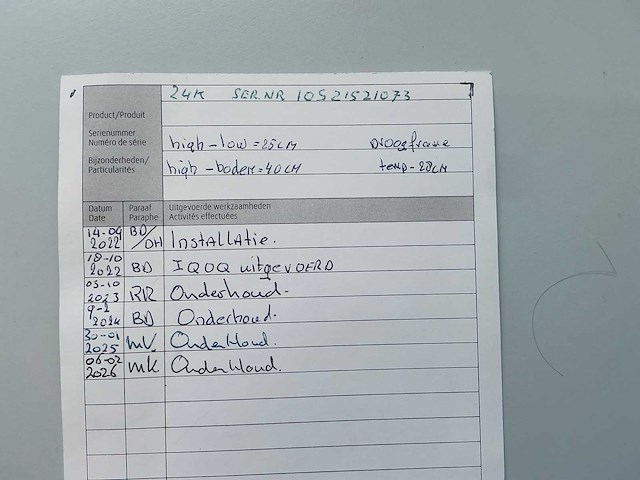 24K SER.NR 10521521073
Product/Produit
Serienummer
Numéro de série
high-low = 25CM droogframe
Bijzonderheden/
Particularités
high-bodem = 40CM temp- 28CM
Datum
Date
Paraaf
Paraphe
Uitgevoerde werkzaamheden
Activités effectuées
14-09 2022 BD/DH Installatie.
18-10 2022 BD IQOQ uitgevoERD
03-10 2023 RR Onderhoud.
9-2 2024 BD Onderhoud.
30-01 2025 MV Onderhoud.
06-02 2026 MK Onderhoud.